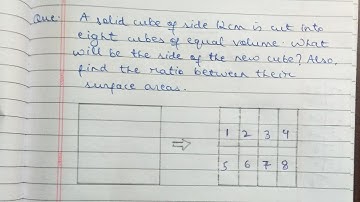 Que: A solid cube of side 12cm is cut into
eight cubes of equal volume. What
will be the side of the new cube? Also,
find the ratio between their
surface areas.
1 2 3 4
⇒
5 6 7 8